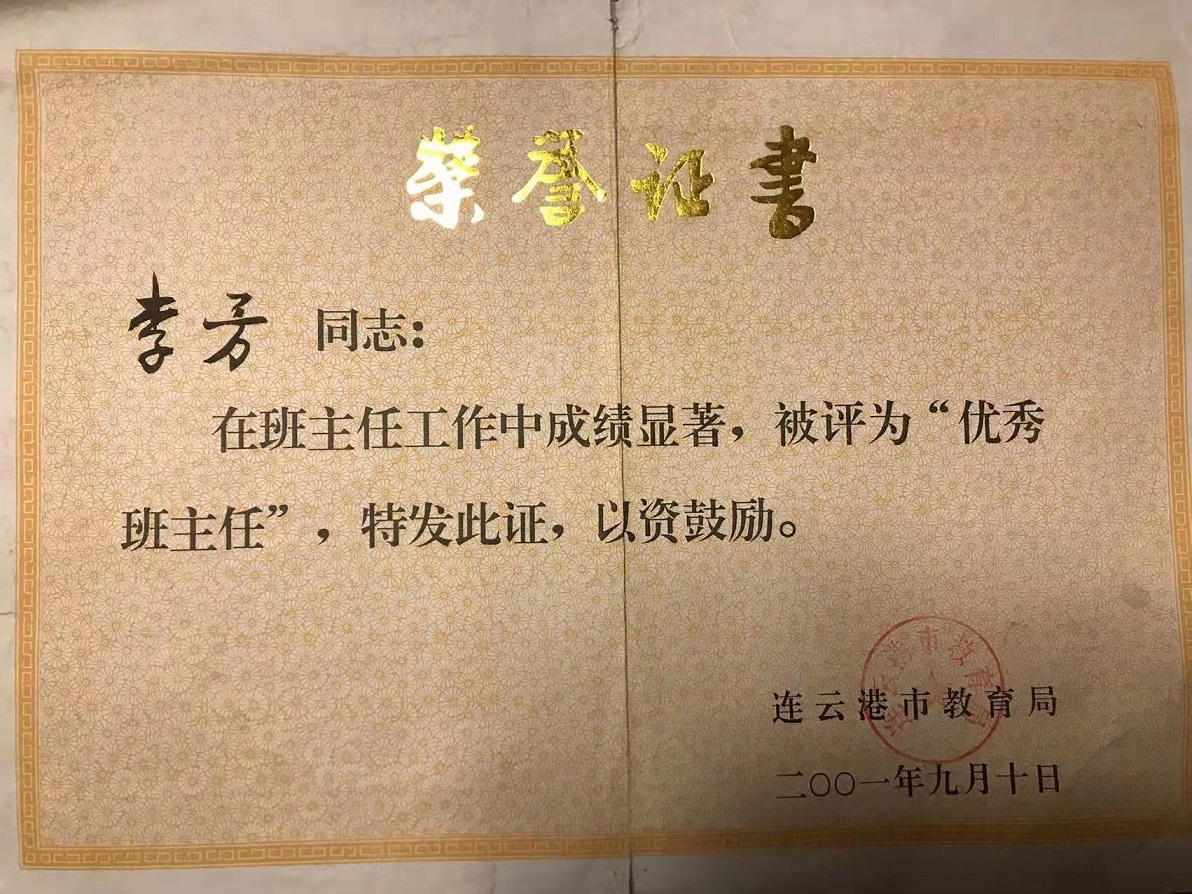 荣誉证书
李芳 同志：
在班主任工作中成绩显著，被评为“优秀
班主任”，特发此证，以资鼓励。
连云港市教育局
连云港市教育局
二〇〇一年九月十日